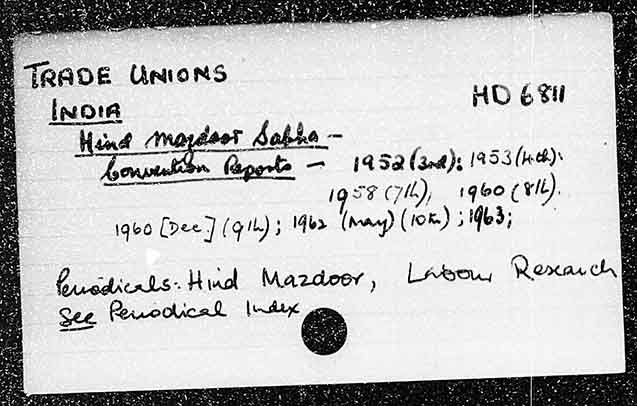 TRADE UNIONS
INDIA
HD 6811
Hind Mazdoor Sabha -
Convention Reports - 1952 (3rd); 1953 (4th);
1958 (7th), 1960 (8th).
1960 [Dec.] (9th); 1962 (May) (10th); 1963;
Periodicals: Hind Mazdoor, Labour Research
See Periodical Index